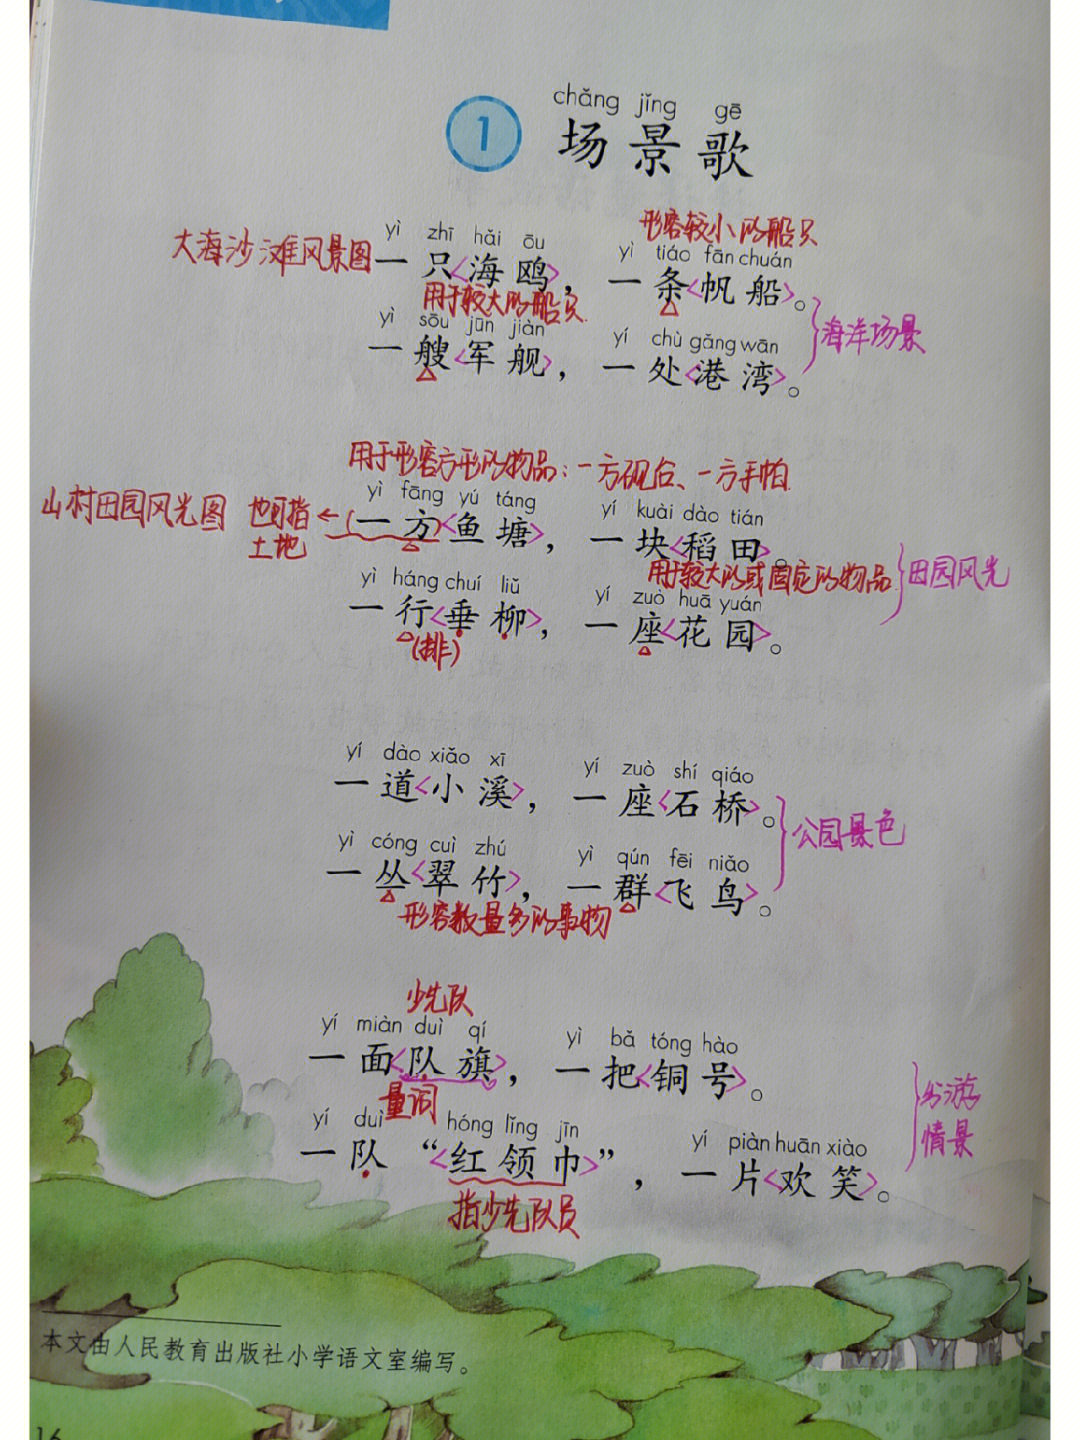 chǎng jǐng gē
1 场景歌
形容较小的船只
yì zhī hǎi ōu yì tiáo fān chuán
大海沙滩风景图 一只<海鸥>，一条<帆船>。
用于较大的船只
yì sōu jūn jiàn yí chù gǎng wān
一艘<军舰>，一处<港湾>。
海洋场景
用于形容方形的物品：一方砚台、一方手帕
yì fāng yú táng yí kuài dào tián
山村田园风光图 也可指土地 ←（一方）<鱼塘>，一块<稻田>。
用于较大的或固定的物品
田园风光
yì háng chuí liǔ yí zuò huā yuán
一行<垂柳>，一座<花园>。
(排)
yí dào xiǎo xī yí zuò shí qiáo
一道<小溪>，一座<石桥>。
公园景色
yì cóng cuì zhú yì qún fēi niǎo
一丛<翠竹>，一群<飞鸟>。
形容数量多的事物
少先队
yí miàn duì qí yì bǎ tóng hào
一面<队旗>，一把<铜号>。
量词
yí duì hóng lǐng jīn yí piàn huān xiào
一队“<红领巾>”，一片<欢笑>。
指少先队员
游
情景
本文由人民教育出版社小学语文室编写。
16